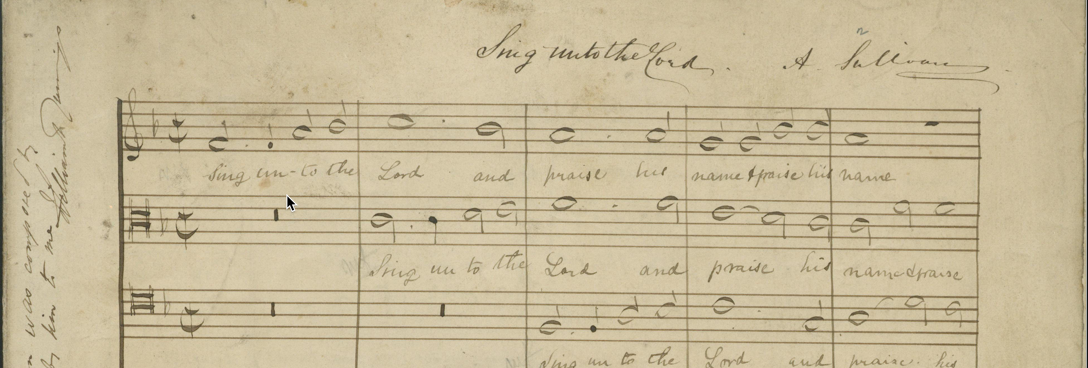 Sing unto the Lord. A Sullivan
sing un-to the Lord and praise his name & praise his name
Sing un to the Lord and praise his name & praise
sing un to the Lord and praise his
n was composed by
by him to me